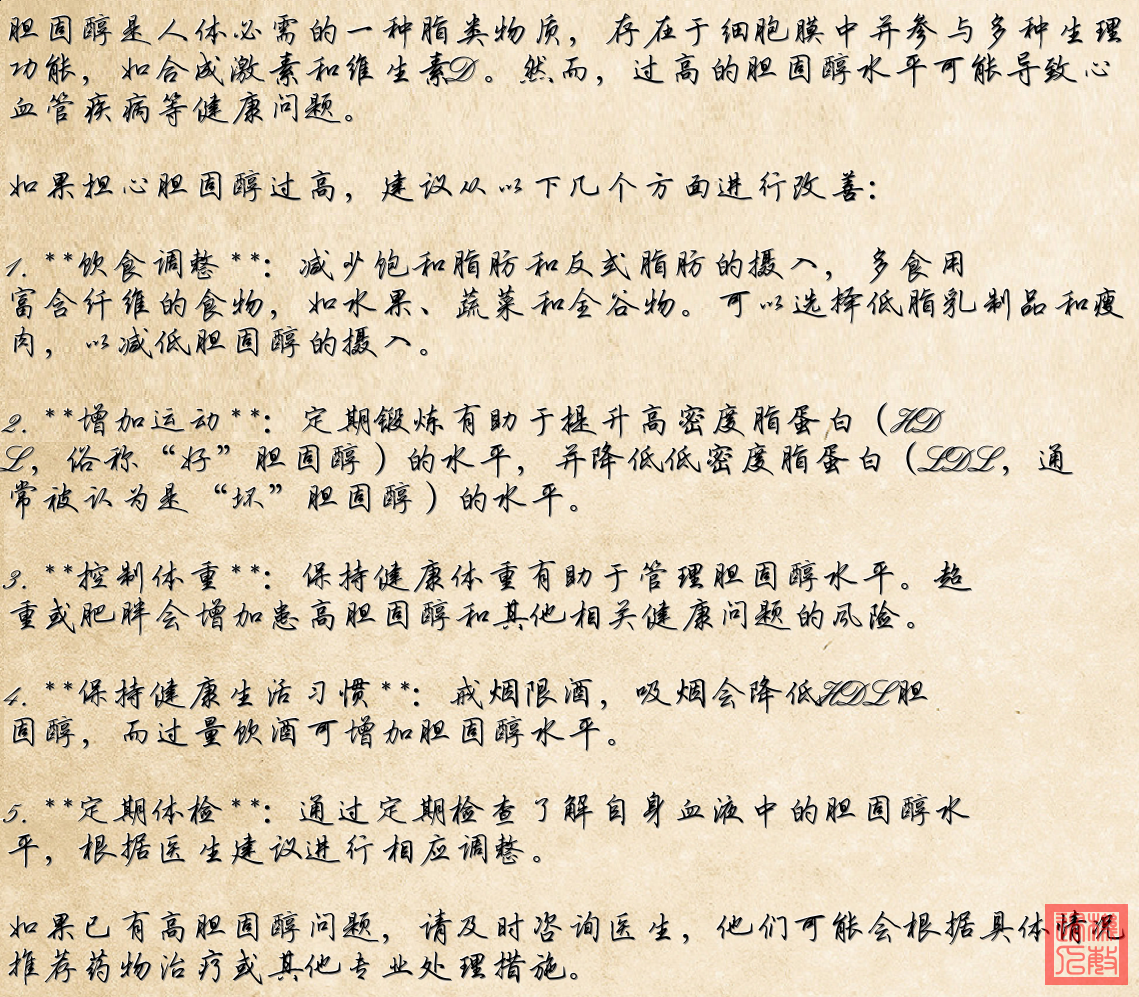 胆固醇是人体必需的一种脂类物质，存在于细胞膜中并参与多种生理
功能，如合成激素和维生素D。然而，过高的胆固醇水平可能导致心
血管疾病等健康问题。
如果担心胆固醇过高，建议从以下几个方面进行改善：
1. **饮食调整**：减少饱和脂肪和反式脂肪的摄入，多食用
富含纤维的食物，如水果、蔬菜和全谷物。可以选择低脂乳制品和瘦
肉，以减低胆固醇的摄入。
2. **增加运动**：定期锻炼有助于提升高密度脂蛋白（HD
L，俗称“好”胆固醇）的水平，并降低低密度脂蛋白（LDL，通
常被认为是“坏”胆固醇）的水平。
3. **控制体重**：保持健康体重有助于管理胆固醇水平。超
重或肥胖会增加患高胆固醇和其他相关健康问题的风险。
4. **保持健康生活习惯**：戒烟限酒，吸烟会降低HDL胆
固醇，而过量饮酒可增加胆固醇水平。
5. **定期体检**：通过定期检查了解自身血液中的胆固醇水
平，根据医生建议进行相应调整。
如果已有高胆固醇问题，请及时咨询医生，他们可能会根据具体情况
推荐药物治疗或其他专业处理措施。